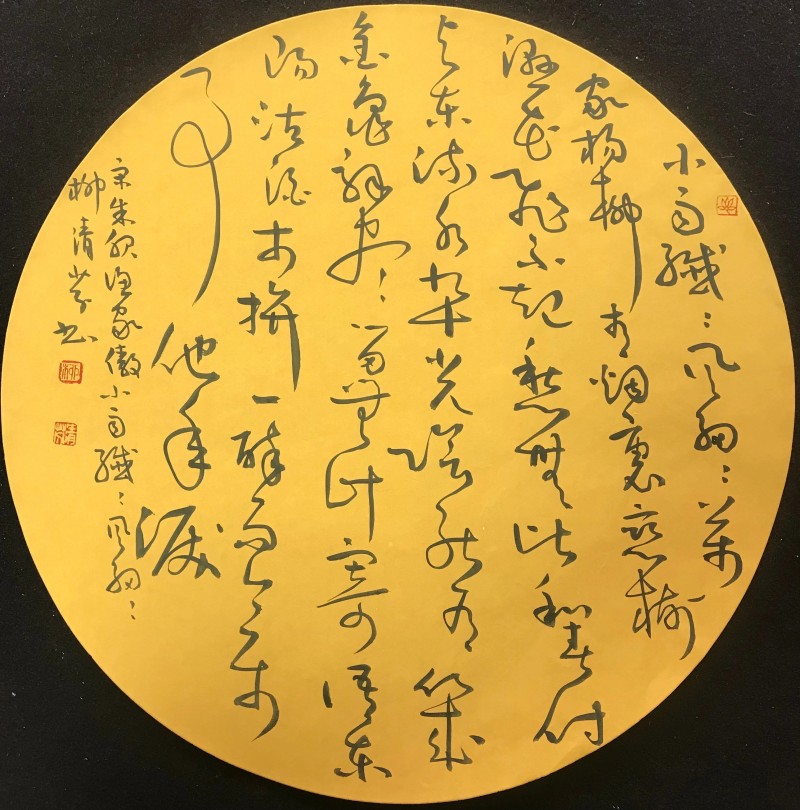 小雨纖〻風細〻萬
家楊柳青烟裏戀樹
濕花飛不起愁無比和春付
与東流水九十光陰能有幾
金龜解盡留無計寄語東
陽沽酒市拚一醉而今樂
事他年淚
宋朱服漁家傲小雨纖〻風細〻
柳清芬书